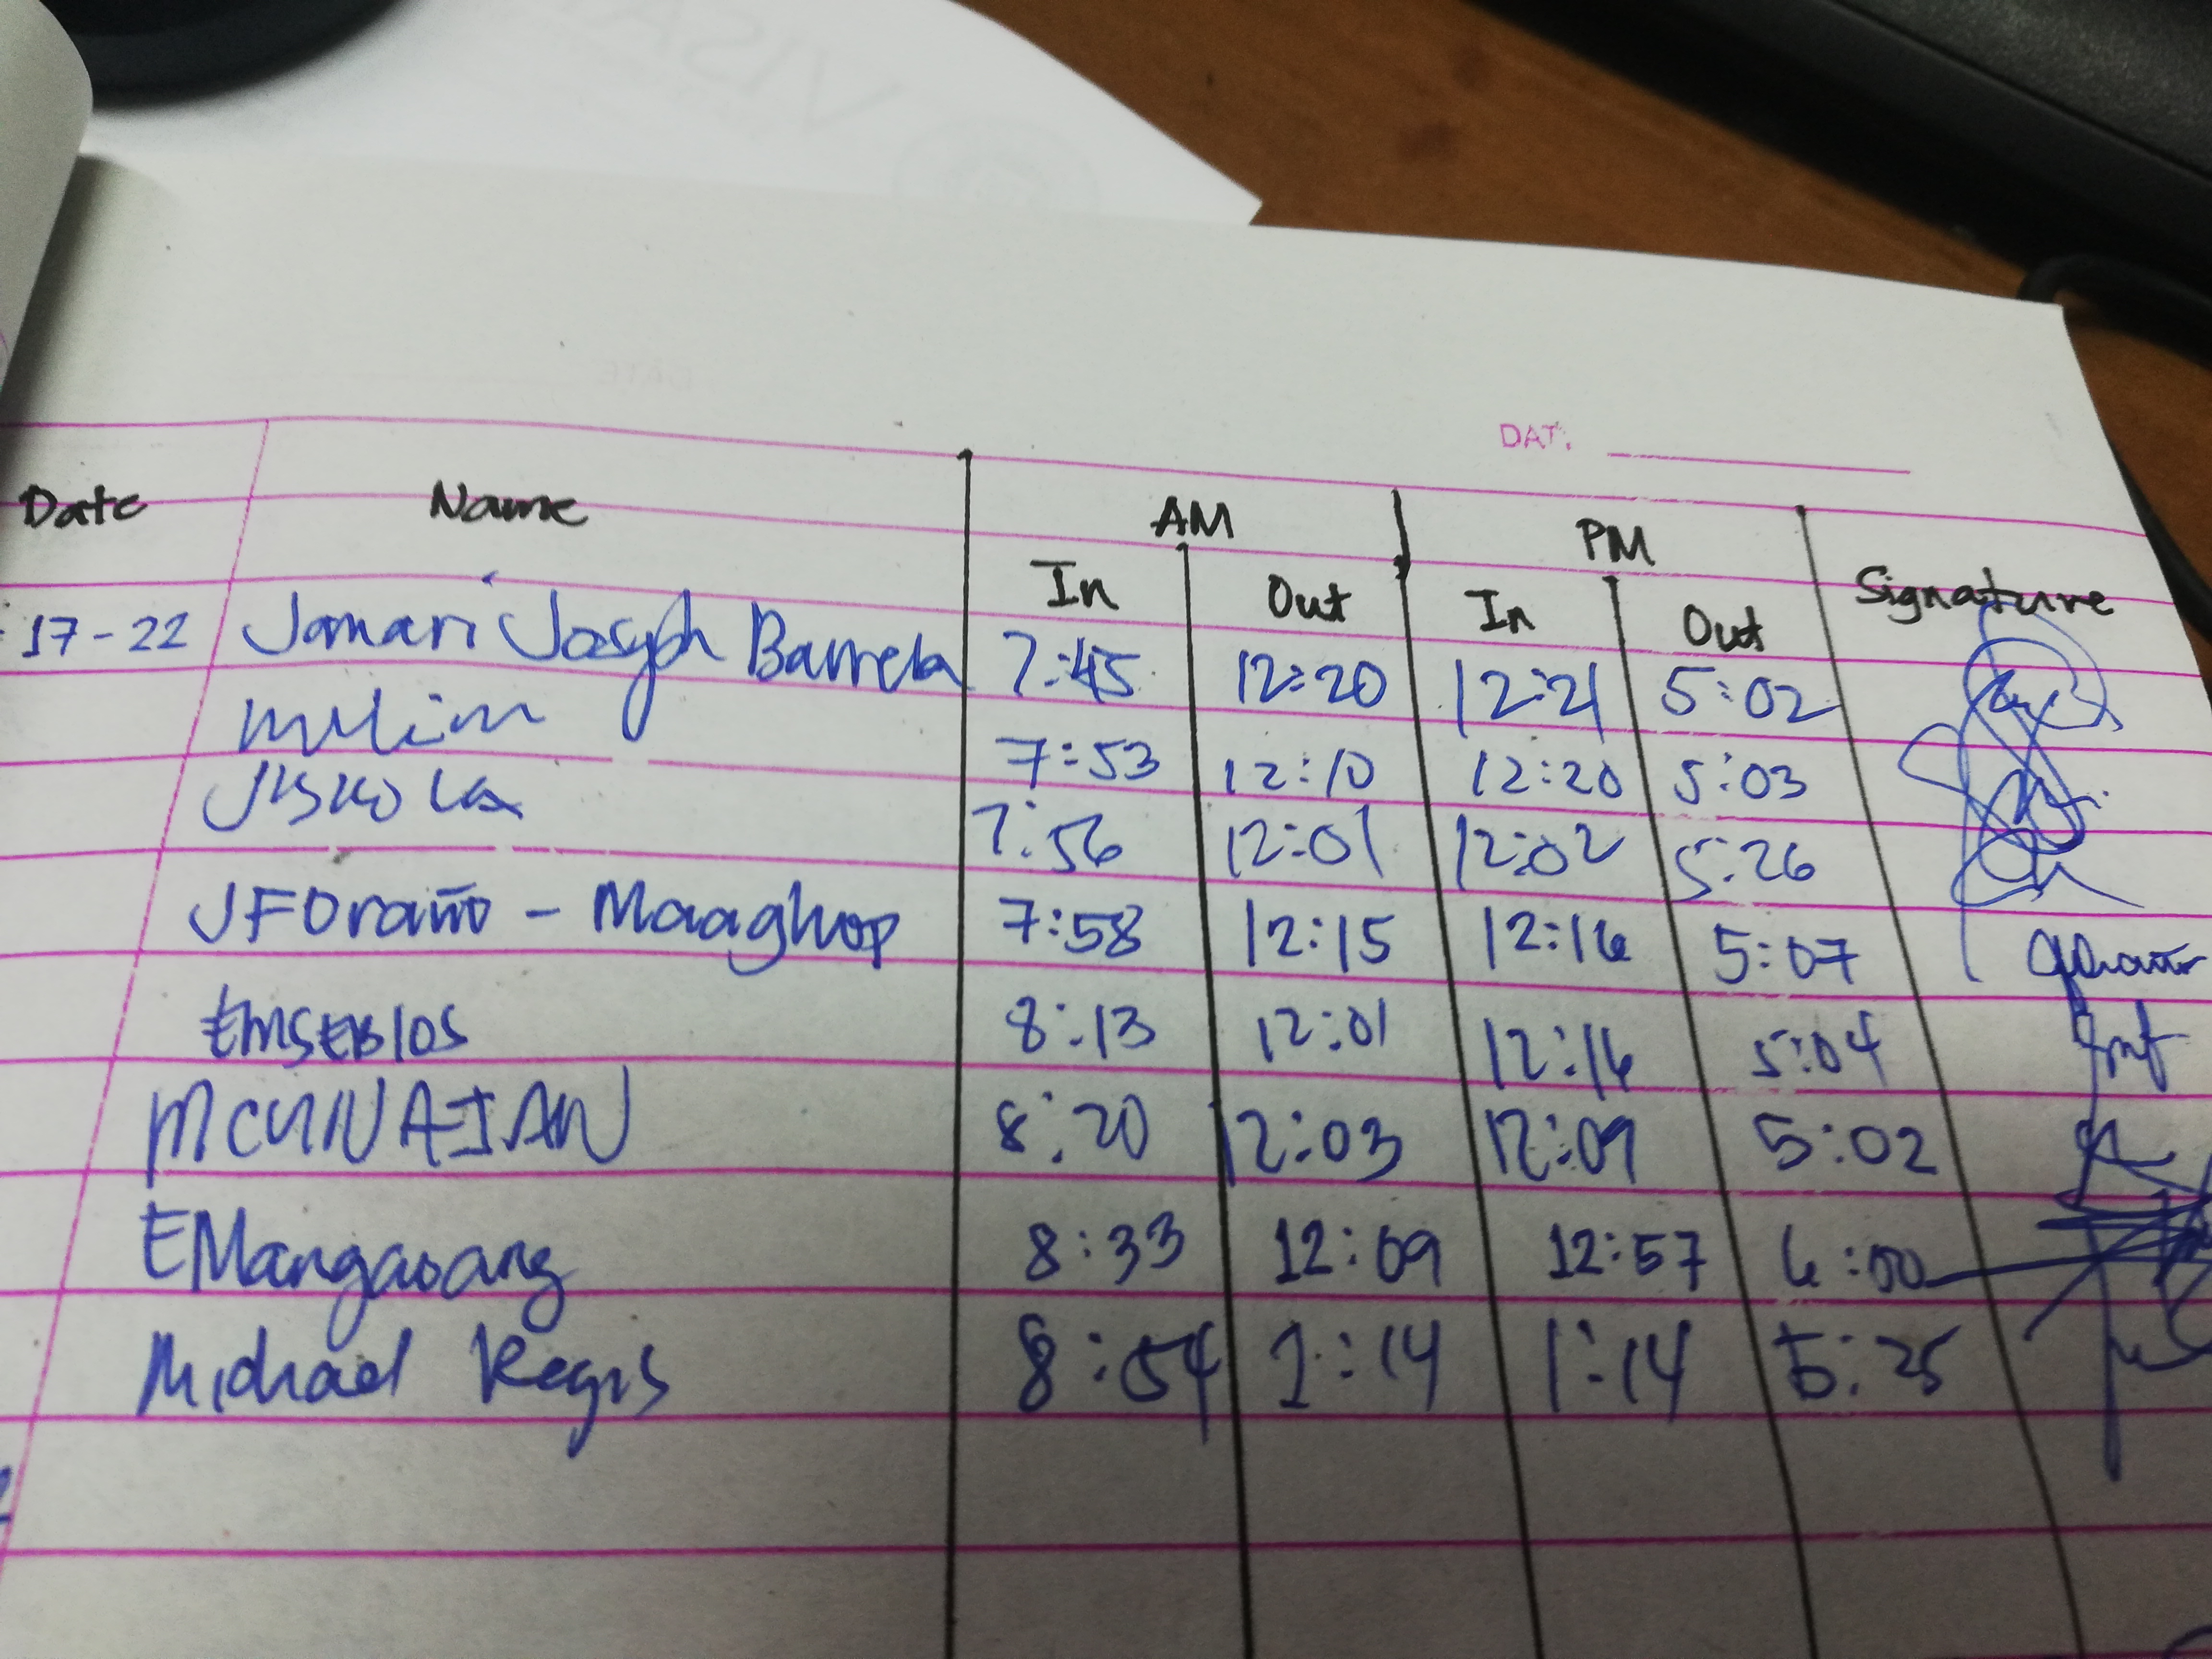 VISA
DATE
DATE
Date Name AM PM Signature
In Out In Out
17-22 Jamari Joseph Barreta 7:45 12:20 12:21 5:02
7:53 12:10 12:20 5:03
7:56 12:01 12:02 5:26
JFOraño - Maaghop 7:58 12:15 12:16 5:07
EMSEBIOS 8:13 12:01 12:16 5:04
MCUNAIAN 8:20 12:03 12:09 5:02
EMangaoang 8:33 12:09 12:57 6:00
Michael Regis 8:54 1:14 1:14 5:25